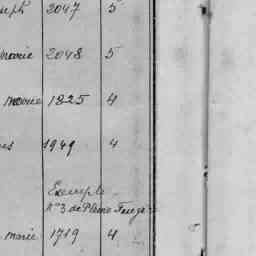 seph 2047 5
marie 2048 5
marie 1825 4
es 1949 4
Exemple
N° 3 de
marie 1719 4